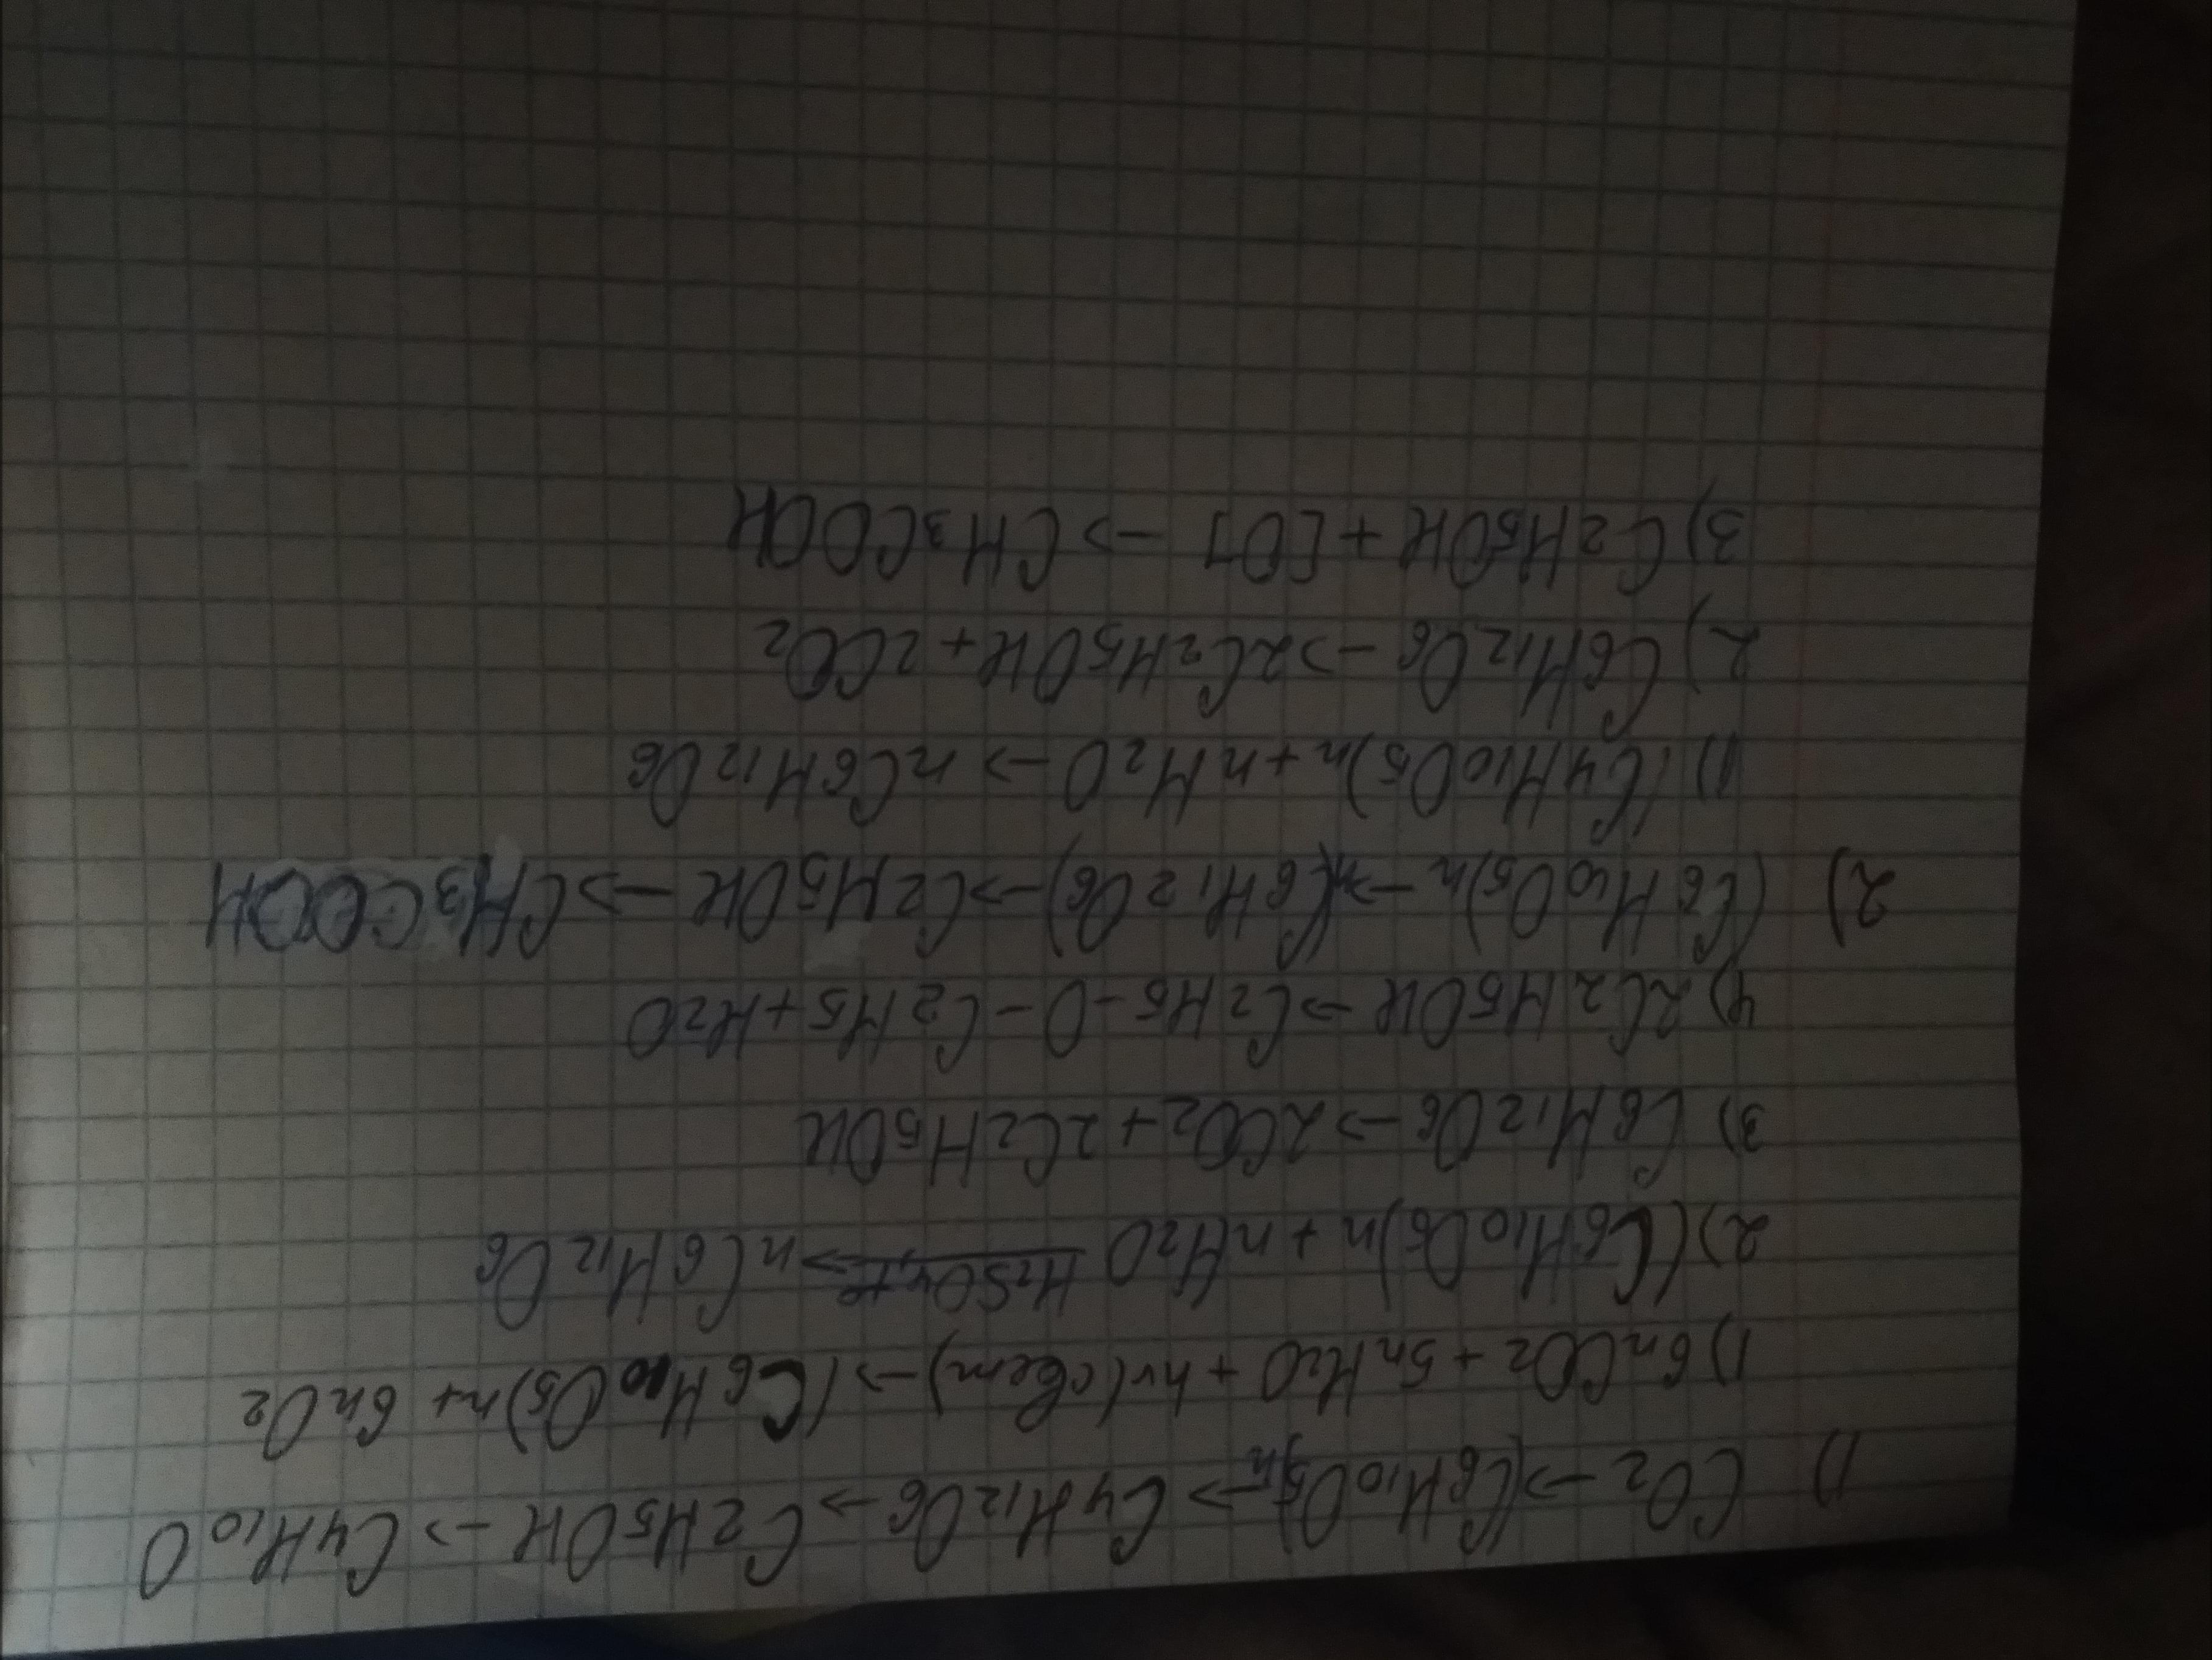 1) CO2 -> (C6H10O5)n -> C4H12O6 -> C2H5OH -> C4H10O
1) 6nCO2 + 5nH2O + hv(свет) -> (C6H10O5)n + 6nO2
2) (C6H10O5)n + nH2O H2SO4,t° -> nC6H12O6
3) C6H12O6 -> 2CO2 + 2C2H5OH
4) 2C2H5OH -> C2H5-O-C2H5 + H2O
2) (C6H10O5)n -> n(C6H12O6) -> C2H5OH -> CH3COOH
1) (C4H10O5)n + nH2O -> nC6H12O6
2) C6H12O6 -> 2C2H5OH + 2CO2
3) C2H5OH + [O] -> CH3COOH